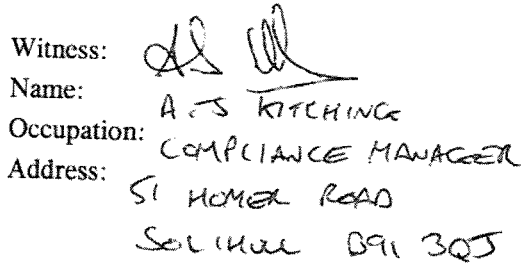 Witness:
Name: A.J KITCHING
Occupation: COMPLIANCE MANAGER
Address: 51 HOMER ROAD
SOLIHULL B91 3QJ